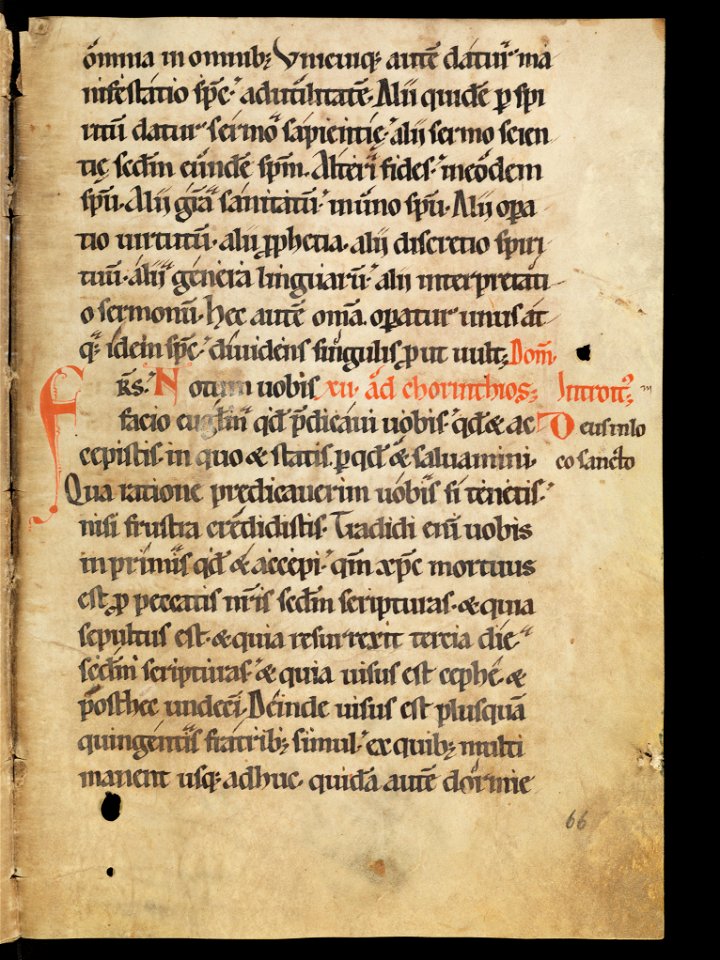 omnia in omnib; Vnicuiq; autē datur ma
nifestatio spc̄ adutilitatē. Alii quidē p spi
ritū datur sermo sapientię alii sermo scien
tię sedm eundē spm̄. Alteri fides ineodem
spū. Alii gr̄a sanitatū in uno spū. Alii opa
tio uirtutū. alii pphetia. alii discretio spiri
tuū. alii genera linguarū alii interpretati
o sermonū. hec autē omā opatur unus at
q; idem spc̄ diuidens singulis put uult; Dom̄.
F r̄s. Notum uobis xii. ad chorinthios; Introit';
facio euglm̄ qd̄ pdicaui uobis qd̄ & ac D eus in lo
cepistis. in quo & statis. p qd̄ & saluamini. co sancto
Qua ratione predicauerim uobis si tenetis.
nisi frustra credidistis. Tradidi eni uobis
inprimis qd̄ & accepi qm̄ xpc̄ mortuus
est p peccatis nr̄is sedm scripturas. & quia
sepultus est. & quia resurrexit tercia die
sedm scripturas & quia uisus est cephe. &
posthec undeci. Deinde uisus est plusquā
quingentis fratrib; simul ex quib; multi
manent usq; adhuc. quidā autē dormie
66